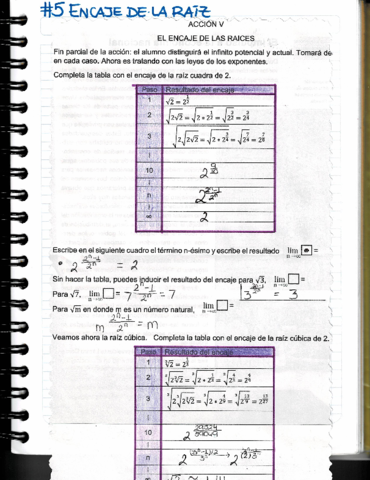 #5 ENCAJE DE LA RAÍZ
ACCIÓN V
EL ENCAJE DE LAS RAICES
Fin parcial de la acción: el alumno distinguirá el infinito potencial y actual. Tomará de
en cada caso. Ahora es tratando con las leyes de los exponentes.
Completa la tabla con el encaje de la raíz cuadra de 2.
Paso Resultado del encaje
1 √2 = 2^(1/2)
2 √(2√2) = √(2∘2^(1/2)) = √(2^(3/2)) = 2^(3/4)
3 √(2√(2√2)) = √(2∘2^(3/4)) = √(2^(7/4)) = 2^(7/8)
⋮
10
⋮
n 2^((2^n-1)/2^n)
⋮
∞ 2
Escribe en el siguiente cuadro el término n-ésimo y escribe el resultado lim n→∞ □ =
• 2^((2^n-1)/2^n) = 2
Sin hacer la tabla, puedes inducir el resultado del encaje para √3, lim n→∞ □ =
Para √7, lim n→∞ □ = 7^((2^n-1)/2^n) = 7 = 3
Para √m en donde m es un número natural, lim n→∞ □ =
m^((2^n-1)/2^n) = m
Veamos ahora la raíz cúbica. Completa la tabla con el encaje de la raíz cúbica de 2.
Paso Resultado del encaje
1 ∛2 = 2^(1/3)
2 ∛(2∛2) = ∛(2∘2^(1/3)) = ∛(2^(4/3)) = 2^(4/9)
3 ∛(2∛(2∛2)) = ∛(2∘2^(4/9)) = ∛(2^(13/9)) = 2^(13/27)
⋮
10
⋮
n